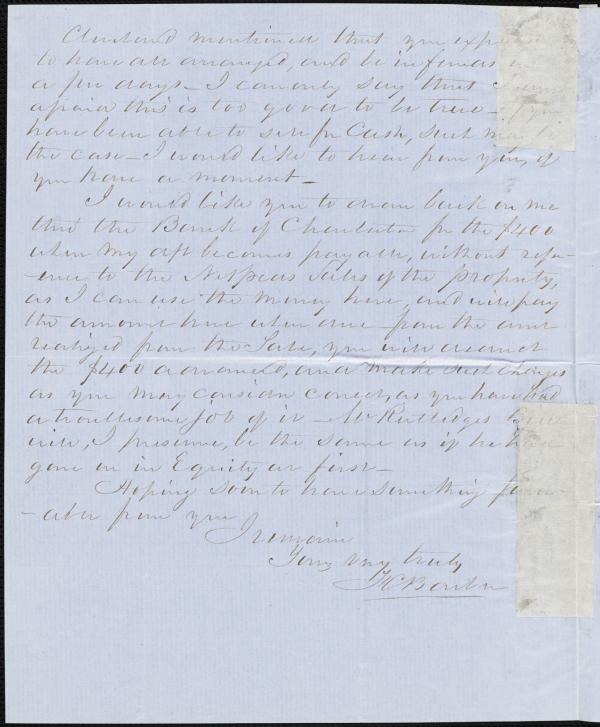 Cleveland mentioned that you expected
to have all arranged, and be in funds in
a few days — I can only say that I am
afraid this is too good to be true — If you
have been able to sell for Cash, such may be
the case — I would like to hear from you, if
you have a moment —
I would like you to draw back on me
thro the Bank of Charleston for the $400
when my dft becomes payable, without refer-
-ence to the Net proceeds sales of the property,
as I can use the money here, and will pay
the amount here when due — from the amt
realized from the Sale, you will deduct
the $400 advanced, and make such charges
as you may consider correct, as you have had
a troublesome job of it — Mr Rutledges
will, I presume, be the same as if he have
gone on in Equity at first —
Hoping soon to have something favor-
-able from you
I remain
Yours very truly